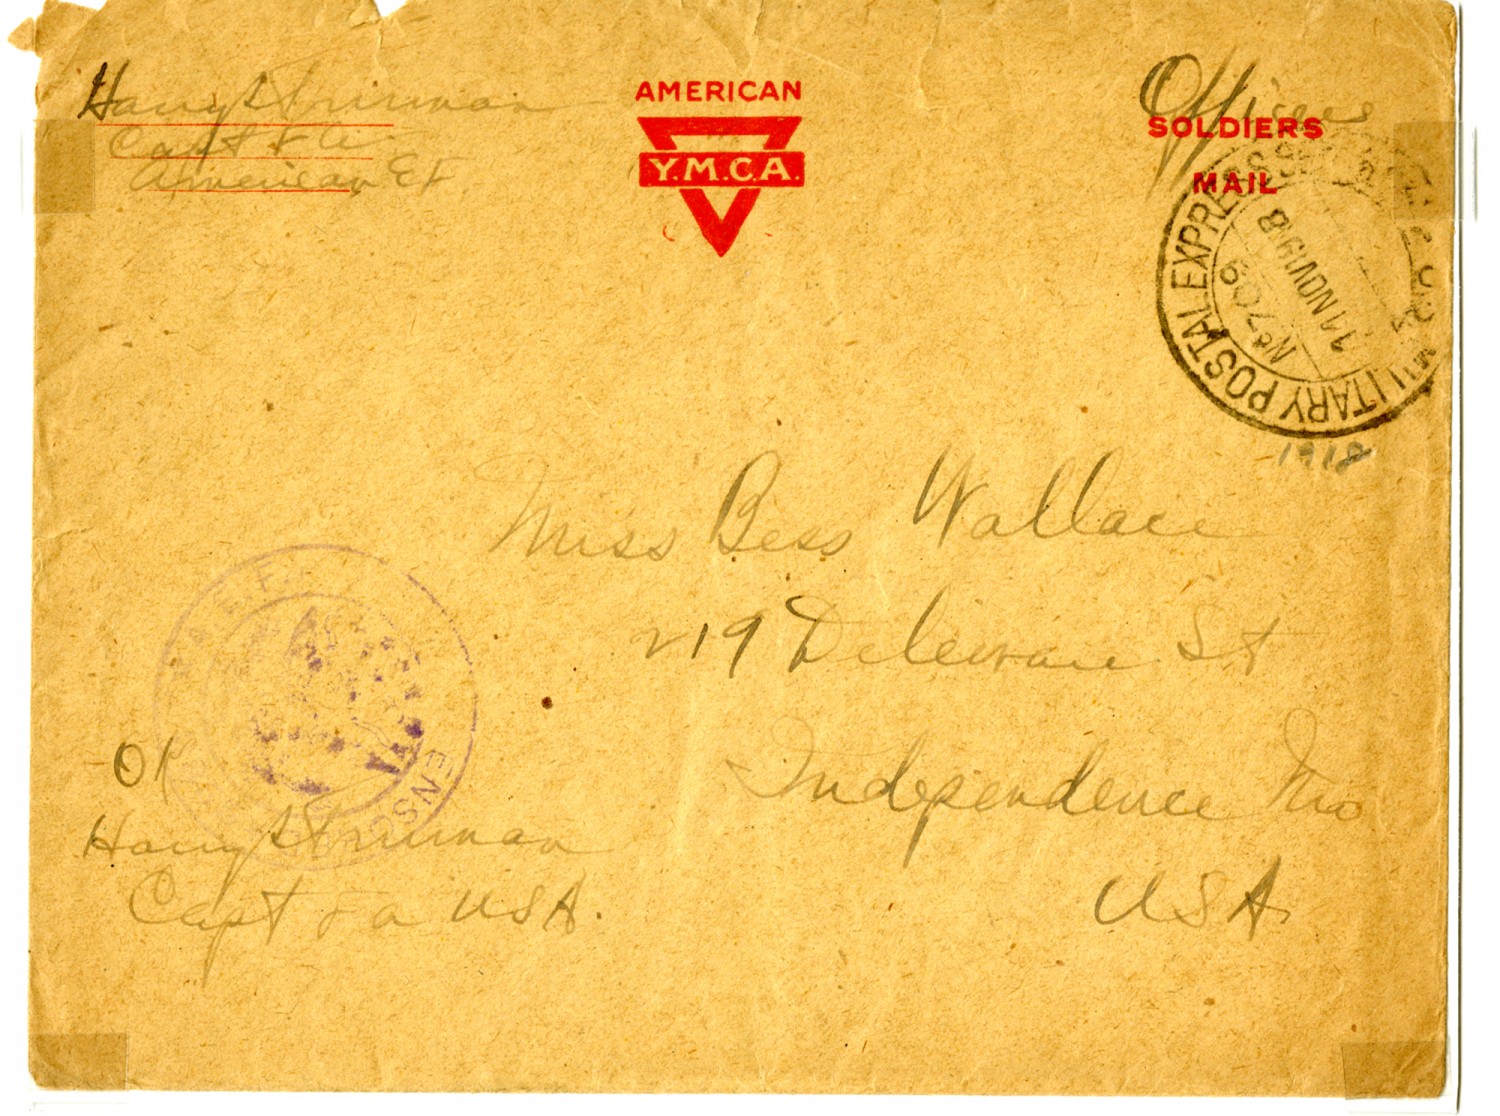 Harry S Truman
Capt F A
American E F
AMERICAN
Y.M.C.A.
Officers
SOLDIERS
MAIL
MILITARY POSTAL EXPRESS SERVICE
No 706
11 NOV 1918
1918
Miss Bess Wallace
219 Deleware St
Independence Mo
USA
A.E.F.
CENSO
OK
Harry S Truman
Capt F A USA.